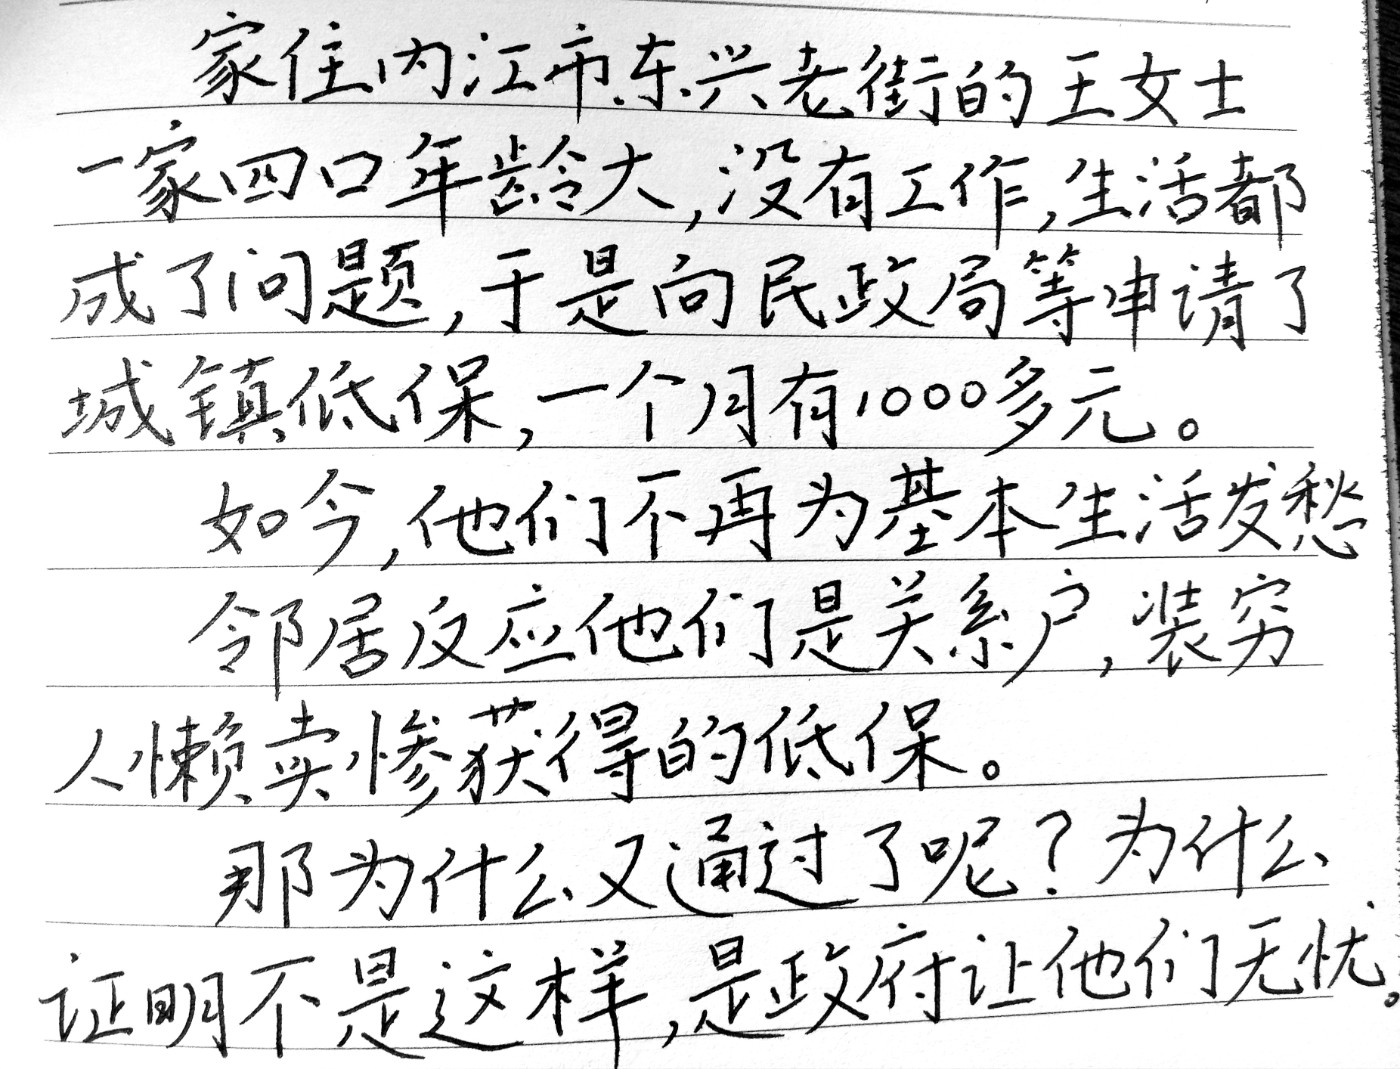 家住内江市东兴老街的王女士
一家四口年龄大,没有工作,生活都
成了问题,于是向民政局等申请了
城镇低保,一个月有1000多元。
如今,他们不再为基本生活发愁
邻居反应他们是关系户,装穷
人懒卖惨获得的低保。
那为什么又通过了呢?为什么
证明不是这样,是政府让他们无忧。